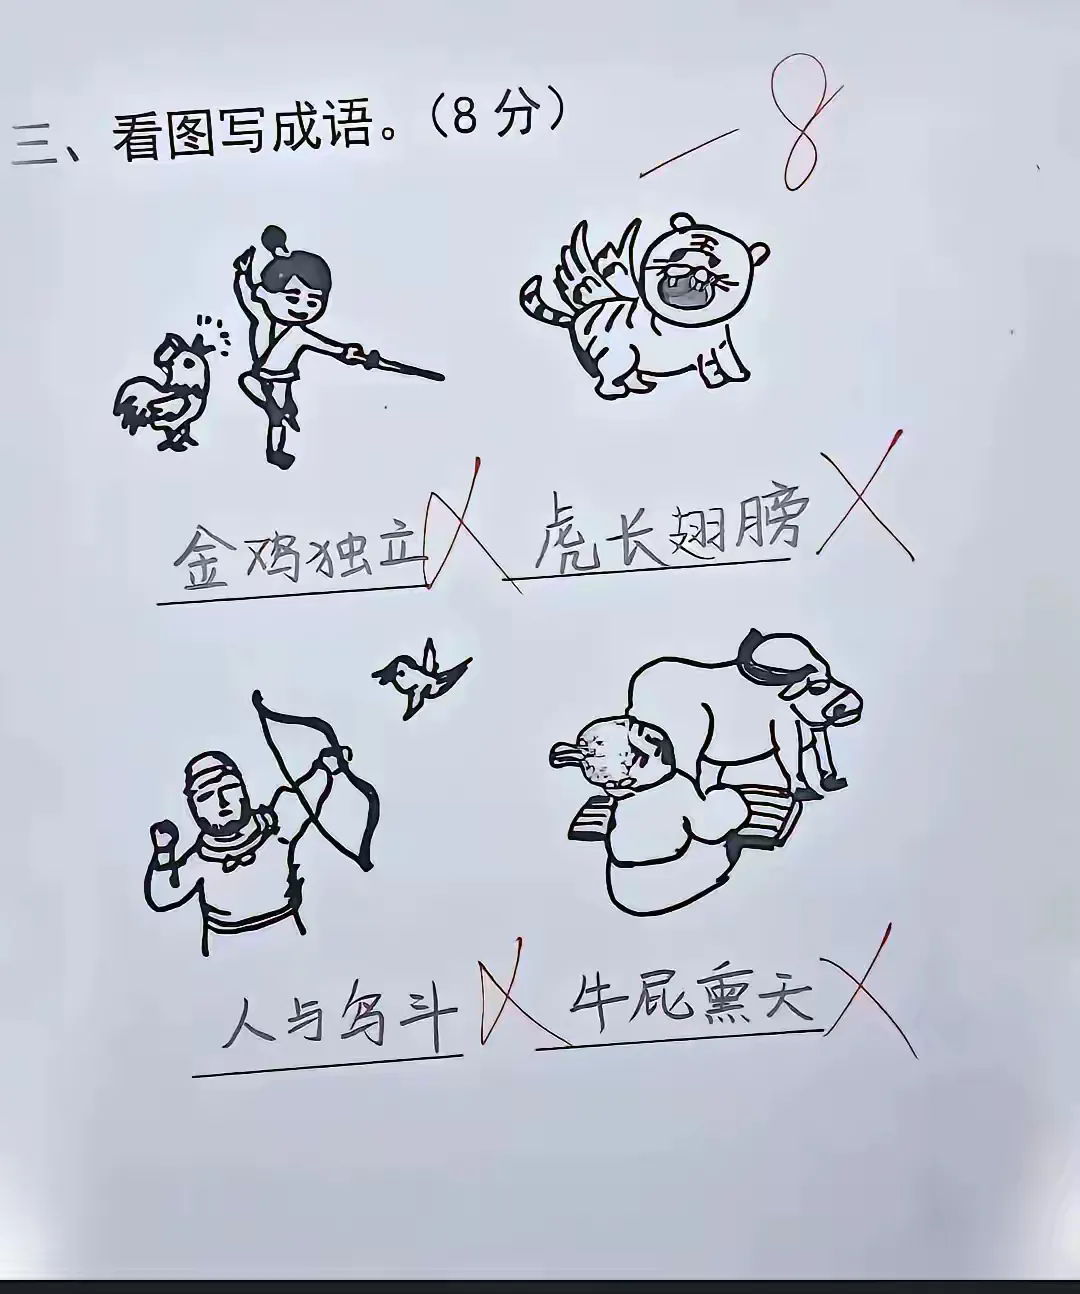 三、看图写成语。（8 分）
－8
王
金鸡独立 虎长翅膀
人与鸟斗 牛屁熏天